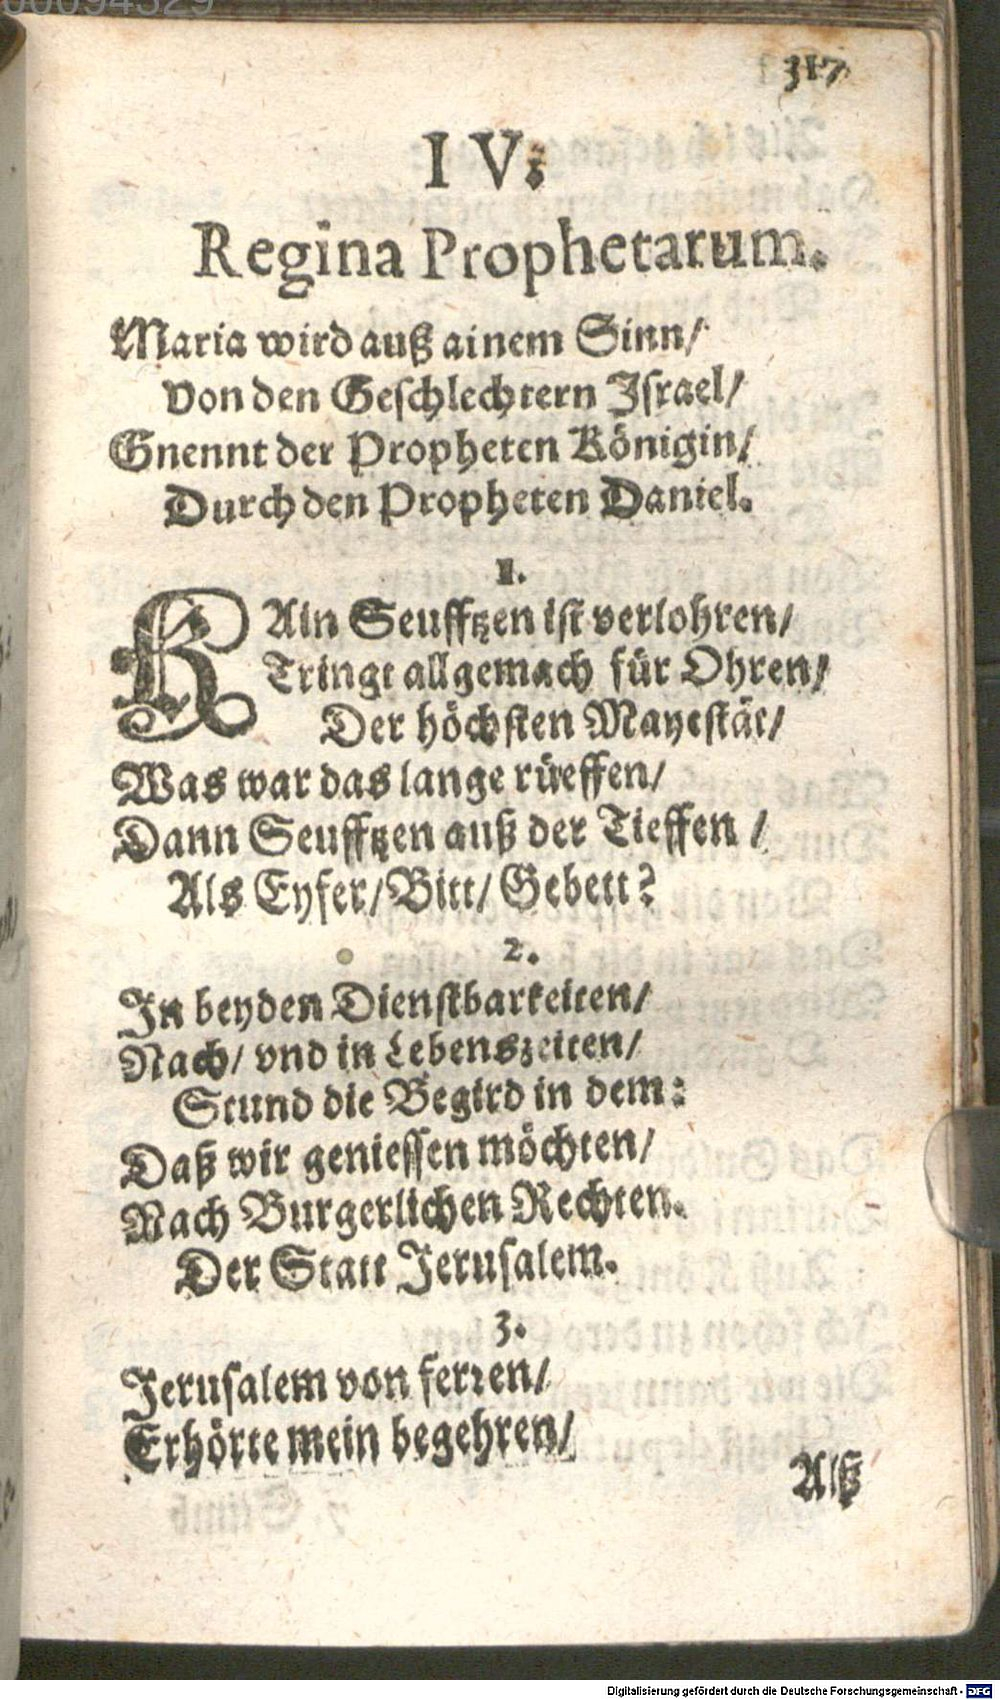 00094329
317
IV.
Regina Prophetarum.
Maria wird auß ainem Sinn/
von den Geschlechtern Israel/
Gnennt der Propheten Königin/
Durch den Propheten Daniel.
1.
KAin Seufftzen ist verlohren/
Tringt allgemach für Ohren/
Der höchsten Mayestät/
Was war das lange rüeffen/
Dann Seufftzen auß der Tieffen /
Als Eyfer/ Bitt/ Gebett?
2.
In beyden Dienstbarkeiten/
Nach/ vnd in Lebenszeiten/
Stund die Begird in dem:
Daß wir geniessen möchten/
Nach Burgerlichen Rechten.
Der Statt Jerusalem.
3.
Jerusalem von ferꝛen/
Erhörte mein begehren/
Alß
Digitalisierung gefördert durch die Deutsche Forschungsgemeinschaft - DFG